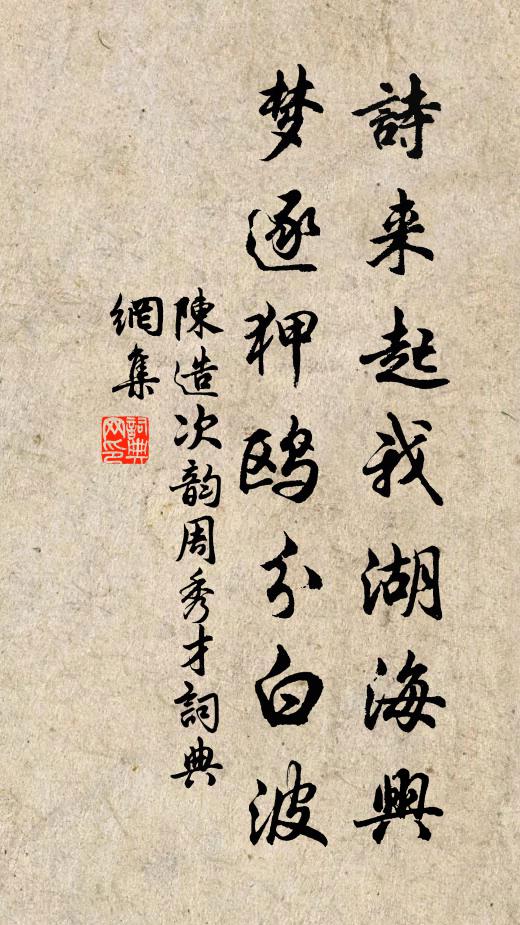 詩来起我湖海興
梦逐狎鸥分白波
陳造次韵周秀才詞典
網集
詞典网印